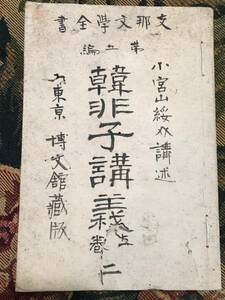 支那文學全書
第五編
小宮山綏介講述
韓非子講義 上卷 二
東京 博文館藏版